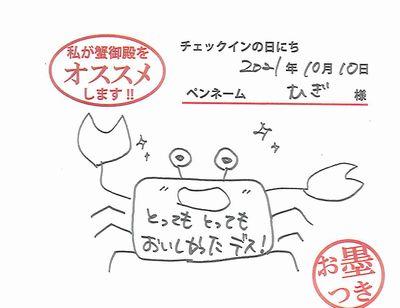 私が蟹御殿を
オススメ
します!!
チェックインの日にち
2021年10月10日
ペンネーム むぎ 様
とっても とっても
おいしかった デス!
お墨
つき